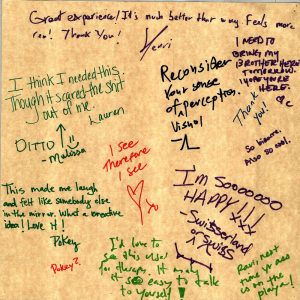 Great experience! It's much better that way feels more
real! Thank You!
Yenri
I NEED TO
BRING MY
BROTHER HERE
TOMORROW.
I HOPE YOU'RE
HERE.
Thank
You!
I think I needed this.
Though it scared the shit
out of me.
Lauren
Reconsider
Your sense
of perception.
Visual
DITTO!
Melissa
I see
Therefore
I see
So bizarre.
Also so cool.
This made me laugh
and felt like somebody else
in the mirror. What a creative
idea! Love it!
Pokey
Pokey?
I'm Soooooo
HAPPY!!!
XXX
-Swisserland
or swiss
I'd love to
see this used
for therapy. It makes
it so easy to talk
to yourself!
Ravi next
time yr
is on the
player!